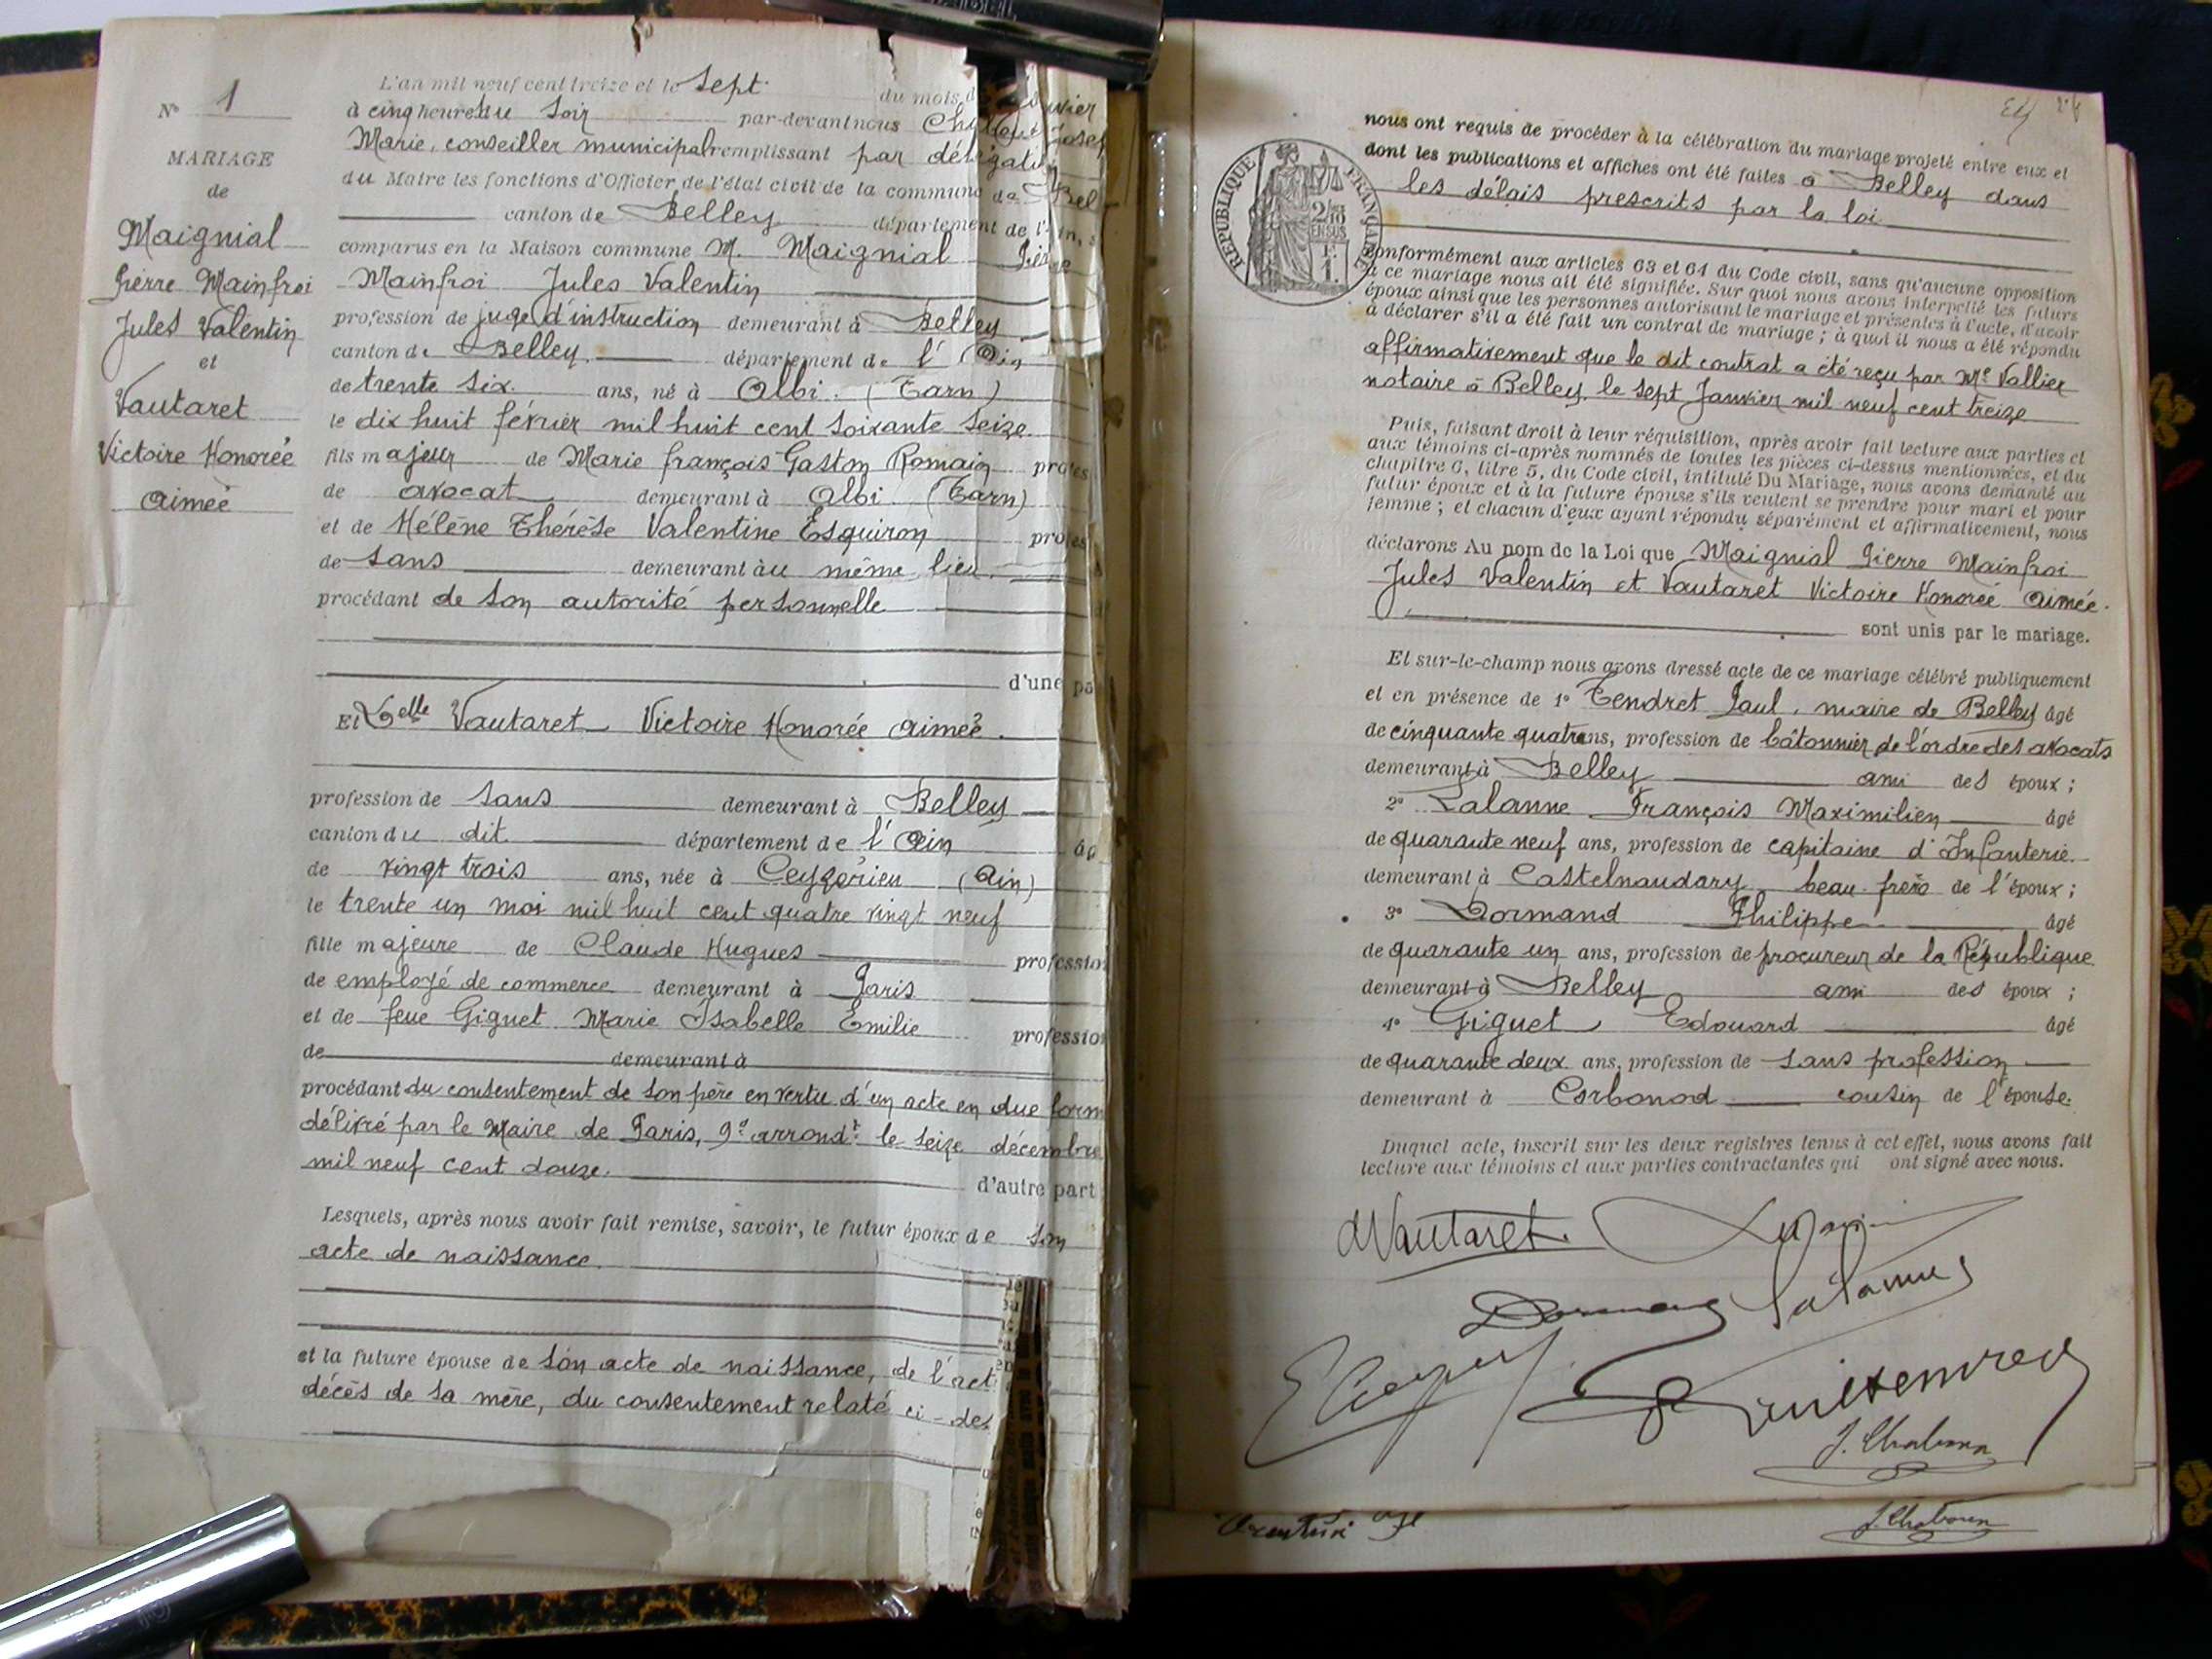 N° 1
MARIAGE
de
Maignial
Pierre Mainfroi
Jules Valentin
et
Vautaret
Victoire Honorée
Aimée
L'an mil neuf cent treize et le sept du mois d
à cinq heures du soir par-devant nous
Marie, conseiller municipal remplissant par délégation
du Maire les fonctions d'Officier de l'état civil de la commune de Bel
canton de Belley département de l'Ain,
comparus en la Maison commune M. Maignial Pierre
Mainfroi Jules Valentin
profession de juge d'instruction demeurant à Belley
canton de Belley. département de l'Ain
de trente six. ans, né à Albi. (Tarn)
le dix huit février mil huit cent soixante seize
fils majeur de Marie François Gaston Romain profes
de avocat demeurant à Albi (Tarn)
et de Hélène Thérèse Valentine Esquiron profes
de sans demeurant au même lieu.
procédant de son autorité personnelle
d'une pa
Et Delle Vautaret Victoire Honorée Aimée.
profession de sans demeurant à Belley
canton du dit département de l'Ain
de vingt trois ans, née à Ceyzérieu (Ain)
le trente un mai mil huit cent quatre vingt neuf
fille majeure de Claude Hugues profession
de employé de commerce demeurant à Paris
et de feue Giguet Marie Isabelle Emilie profession
de demeurant à
procédant du consentement de son père en vertu d'un acte en due form
délivré par le Maire de Paris, 9e arrondt le seize décembre
mil neuf cent douze. d'autre part
Lesquels, après nous avoir fait remise, savoir, le futur époux de son
acte de naissance.
et la future épouse de son acte de naissance, de l'act
décès de sa mère, du consentement relaté ci-des
nous ont requis de procéder à la célébration du mariage projeté entre eux et
dont les publications et affiches ont été faites à Belley dans
les délais prescrits par la loi
RÉPUBLIQUE FRANÇAISE
2/10
EN SUS
1 F.
conformément aux articles 63 et 64 du Code civil, sans qu'aucune opposition
à ce mariage nous ait été signifiée. Sur quoi nous avons interpellé les futurs
époux ainsi que les personnes autorisant le mariage et présentes à l'acte, d'avoir
à déclarer s'il a été fait un contrat de mariage ; à quoi il nous a été répondu
affirmativement que le dit contrat a été reçu par Me Vallier
notaire à Belley, le sept Janvier mil neuf cent treize
Puis, faisant droit à leur réquisition, après avoir fait lecture aux parties et
aux témoins ci-après nommés de toutes les pièces ci-dessus mentionnées, et du
chapitre 6, titre 5, du Code civil, intitulé Du Mariage, nous avons demandé au
futur époux et à la future épouse s'ils veulent se prendre pour mari et pour
femme ; et chacun d'eux ayant répondu séparément et affirmativement, nous
déclarons Au nom de la Loi que Maignial Pierre Mainfroi
Jules Valentin et Vautaret Victoire Honorée Aimée.
sont unis par le mariage.
Et sur-le-champ nous avons dressé acte de ce mariage célébré publiquement
et en présence de 1° Tendret Paul, maire de Belley âgé
de cinquante quatre ans, profession de bâtonnier de l'ordre des avocats
demeurant à Belley ami des époux ;
2° Lalanne François Maximilien âgé
de quarante neuf ans, profession de capitaine d'Infanterie
demeurant à Castelnaudary beau-frère de l'époux ;
3° Dormand Philippe âgé
de quarante un ans, profession de procureur de la République
demeurant à Belley ami des époux ;
4° Giguet Edouard âgé
de quarante deux ans, profession de sans profession
demeurant à Corbonod cousin de l'épouse.
Duquel acte, inscrit sur les deux registres tenus à cet effet, nous avons fait
lecture aux témoins et aux parties contractantes qui ont signé avec nous.
AVautaret
Dormand Lalanne